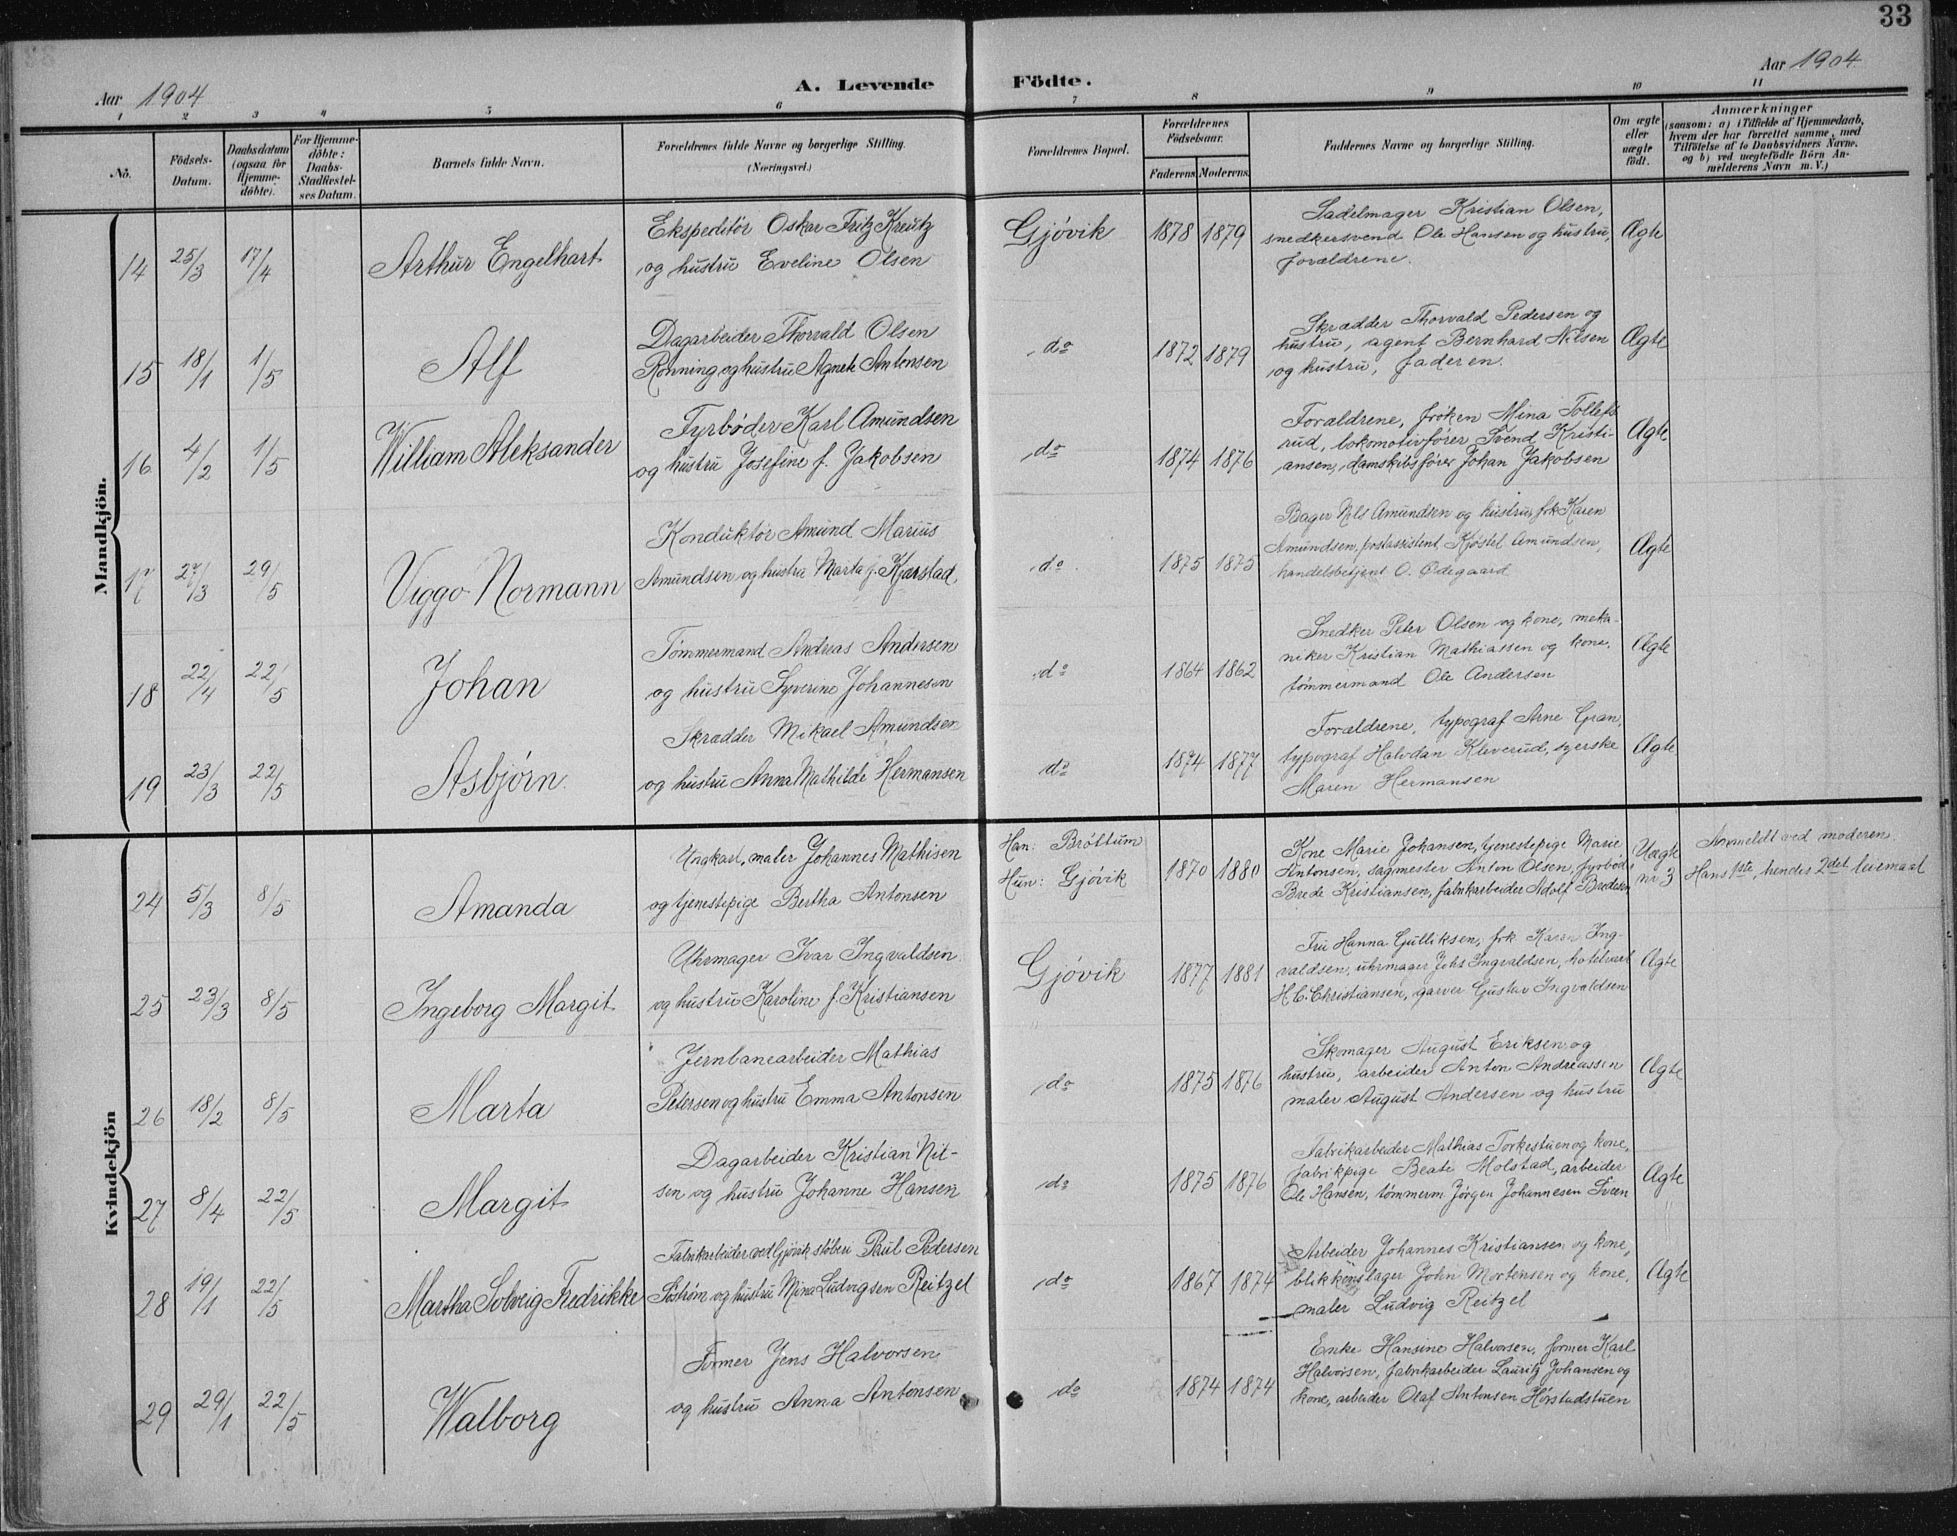 33
Aar 1904
A. Levende Födte.
Aar 1904
1 2 3 4 5 6 7 8 9 10 11
No.
Födsels-Datum.
Daabsdatum (ogsaa for Hjemme-döbte).
For Hjemme-döbte: Daabs-Stadfæstel-ses Datum.
Barnets fulde Navn.
Forældrenes fulde Navne og borgerlige Stilling.
(Næringsvei.)
Forældrenes Bopæl.
Forældrenes Födselsaar.
Faderens. Moderens.
Faddernes Navne og borgerlige Stilling.
Om ægte eller uægte födt.
Anmærkninger
(saasom: a) i Tilfælde af Hjemmedaab,
hvem der har forrettet samme, med
Tilföielse af to Daabsvidners Navne.
og b) ved uægtefödte Börn An-
melderens Navn m. V.)
Mandkjön.
14 25/3 17/4 Arthur Engelhart
Ekspeditör Oskar Fritz Kreutz
og hustru Eveline Olsen
Gjövik 1878 1879
Sadelmager Kristian Olsen,
snedkersvend Ole Hansen og hustru,
forældrene.
Ægte
15 18/1 1/5 Alf
Dagarbeider Thorvald Olsen
Rönning og hustru Agnete Antonsen
do 1872 1879
Skrædder Thorvald Pedersen og
hustru, agent Bernhard Nilsen
og hustru, faderen.
Ægte
16 4/2 1/5 William Aleksander
Fyrböder Karl Amundsen
og hustru Josefine f. Jakobsen
do 1874 1876
Forældrene, fröken Mina Tollefs
rud, lokomotivförer Svend Kristi-
ansen, damskibsförer Johan Jakobsen
Ægte
17 27/3 29/5 Viggo Normann
Konduktör Amund Marius
Amundsen og hustru Marta f. Kjærstad
do 1875 1875
Bager Nils Amundsen og hustru, frk Karen
Amundsen, postassistent Kjöstel Amundsen,
handelsbetjent O. Ödegaard
Ægte
18 22/4 22/5 Johan
Tömmermand Andreas Andersen
og hustru Syverine Johannesen
do 1864 1862
Snedker Peter Olsen og kone, meka-
niker Kristian Mathiassen og kone,
tömmermand Ole Andersen
Ægte
19 23/3 22/5 Asbjörn.
Skrædder Mikael Amundsen
og hustru Anna Mathilde Hermansen
do 1874 1877
Forældrene, typograf Arne Gran,
typograf Halvdan Kleverud, syerske
Maren Hermansen
Ægte
Kvindekjön
24 5/3 8/5 Amanda
Ungkarl, maler Johannes Mathisen
og tjenestepige Bertha Antonsen
Han: Bröttum
Hun: Gjövik
1870 1880
Kone Marie Johansen, tjenestepige Marie
Antonsen, sagmester Anton Olsen, fyrböd.
Brede Kristiansen, fabrikarbeider Adolf Bredesen
Uægte nr 3
Anmeldt ved moderen
Hans 1ste, hendes 2det leiermaal
25 23/3 8/5 Ingeborg Margit
Uhrmager Ivar Ingvaldsen
og hustru Karoline f. Kristiansen
Gjövik 1877 1881
Fru Hanna Gulliksen, frk Karen Ing-
valdsen, uhrmager Johs Ingvaldsen, hotelvært
H. C. Christiansen, garver Gustav Ingvaldsen
Ægte
26 18/2 8/5 Marta
Jernbanearbeider Mathias
Petersen og hustru Emma Antonsen
do 1875 1876
Skomager August Eriksen og
hustru, arbeider Anton Andreassen
maler August Andersen og hustru
Ægte
27 8/4 22/5 Margit
Dagarbeider Kristian Nil-
sen og hustru Johanne Hansen
do 1875 1876
Fabrikarbeider Mathias Torkestuen og kone,
fabrikpige Beate Molstad, arbeider
Ole Hansen, tömmerm Jörgen Johannesen Sveen
Ægte
28 19/1 22/5 Martha Solveig Fredrikke
Fabrikarbeider ved Gjövik stöberi Paul Pedersen
Söström og hustru Mina Ludvigsen Reitzel
do 1867 1874
Arbeider Johannes Kristiansen og kone,
blikkenslager John Mortensen og kone,
maler Ludvig Reitzel
Ægte
29 29/1 22/5 Walborg
Former Jens Halvorsen
og hustru Anna Antonsen
do 1874 1874
Enke Hansine Halvorsen, former Karl
Halvorsen, fabrikarbeider Lauritz Johansen og
kone, arbeider Olaf Antonsen Hörstadstuen